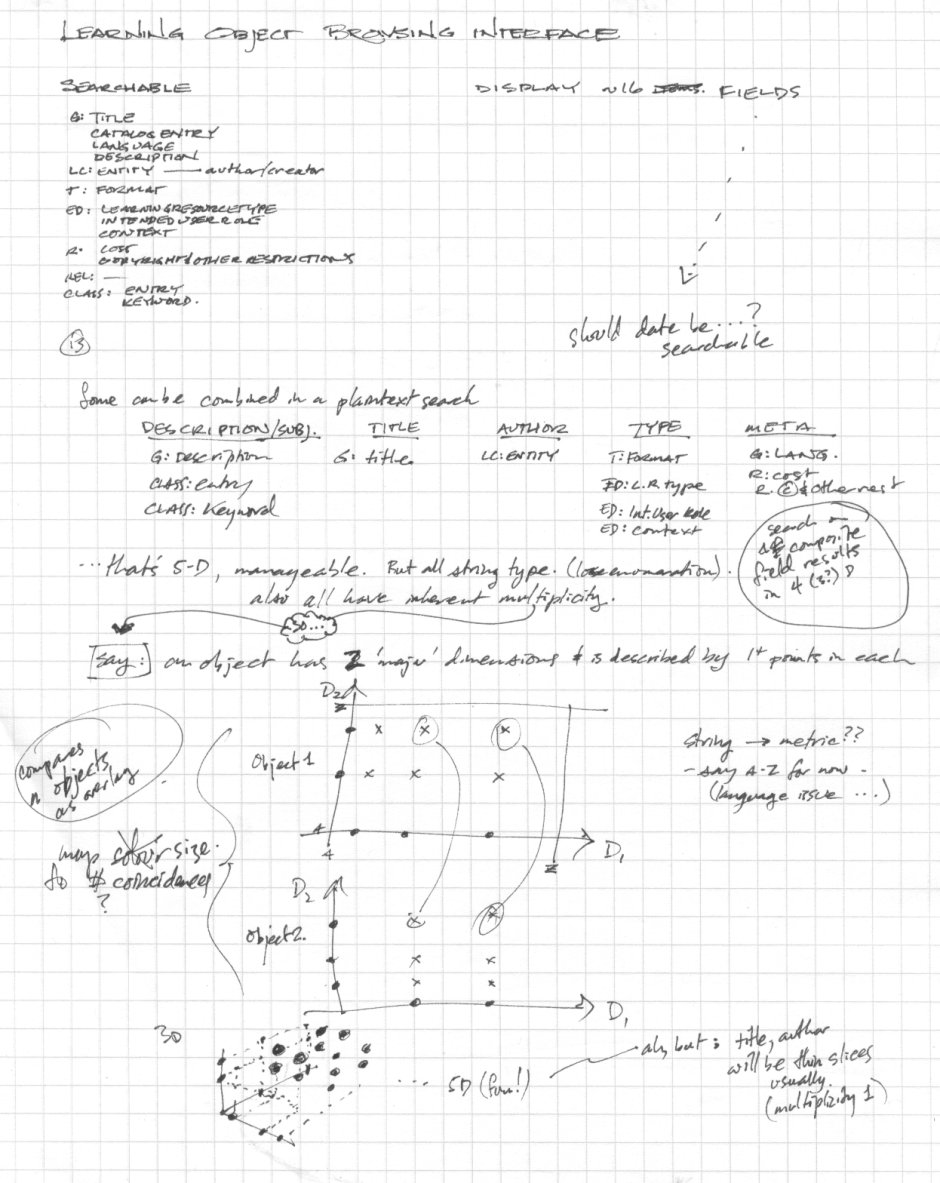 LEARNING OBJECT BROWSING INTERFACE
SEARCHABLE
DISPLAY ~16 FIELDS
G: TITLE
CATALOG ENTRY
LANGUAGE
DESCRIPTION
LC: ENTITY — author/creator
T: FORMAT
ED: LEARNINGRESOURCETYPE
INTENDEDUSERROLE
CONTEXT
R. COST
COPYRIGHT&OTHER RESTRICTIONS
REL: —
CLASS: ENTRY
KEYWORD.
13
should date be...?
searchable
Some can be combined in a plaintext search
DESCRIPTION/SUBJ. TITLE AUTHOR TYPE META
G: Description G: title LC: ENTITY T: FORMAT G: LANG.
CLASS: entry ED: L.R. type R: cost
CLASS: Keyword ED: Int. User Role R. © & other rest
ED: context
search on
composite
field results
in 4 (3?) D
...that's 5-D, manageable. But all string type. (lose enumeration).
also all have inherent multiplicity.
so...
say: an object has 2 'major' dimensions & is described by 1+ points in each
D2
Z
Object 1
A
A
Z
D1
compares
n objects
as overlay
map colour size
to # coincidences
?
String → metric??
- say A-Z for now -
(language issue ...)
D2
Object 2.
D1
3D
.... 5D (fun!)
ah, but: title, author
will be thin slices
usually.
(multiplicity 1)